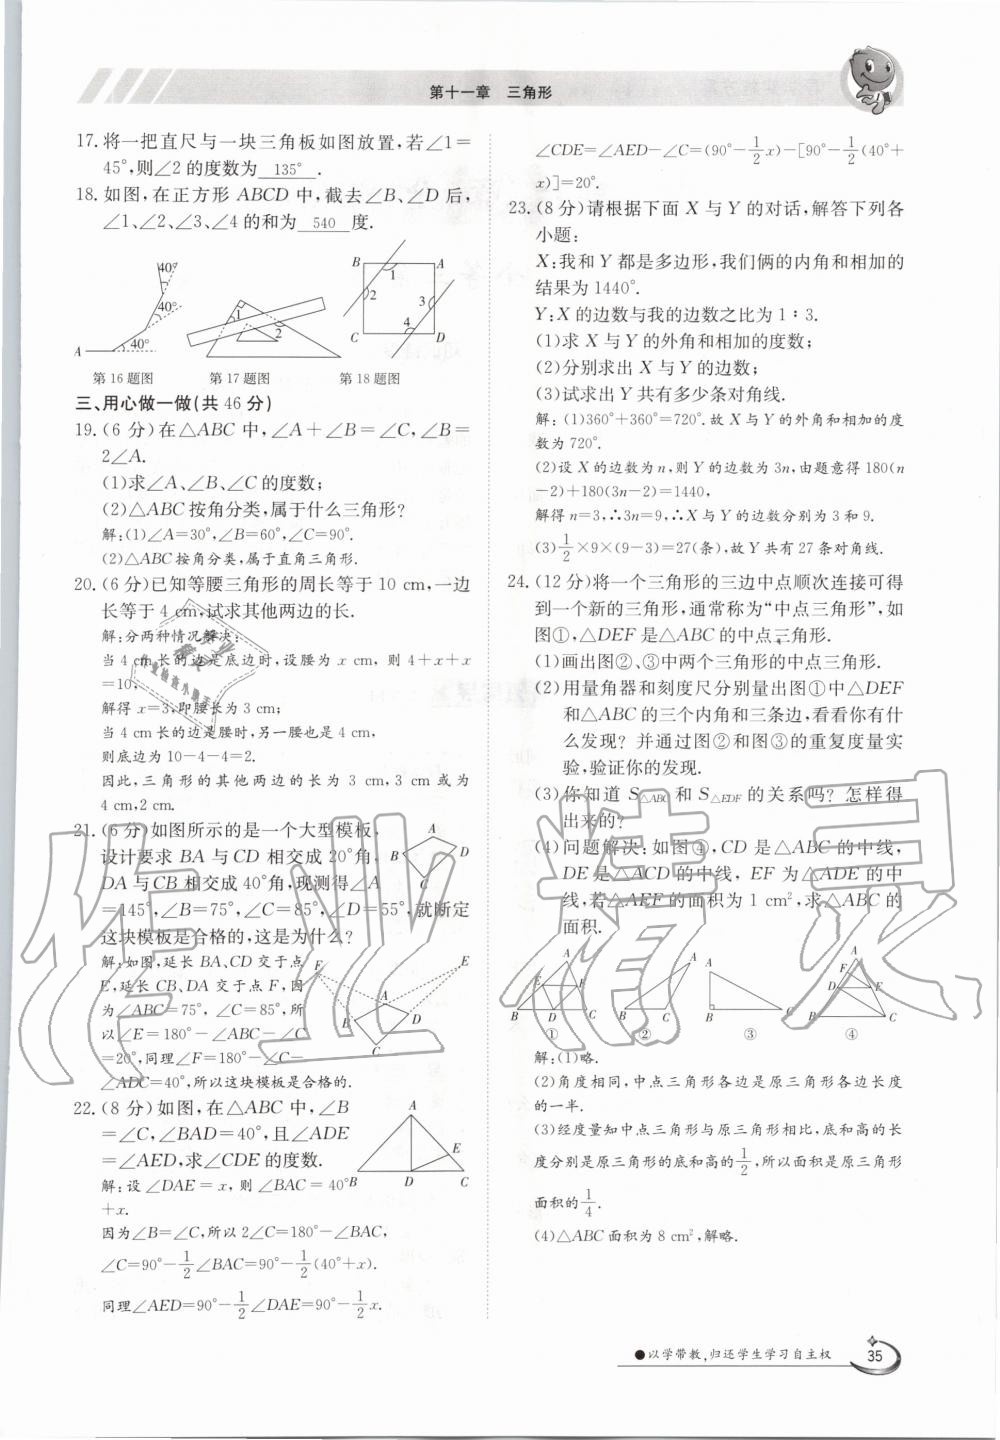 第十一章 三角形
17.将一把直尺与一块三角板如图放置,若∠1=
45°,则∠2的度数为 135° .
18.如图,在正方形 ABCD 中,截去∠B、∠D 后,
∠1、∠2、∠3、∠4 的和为 540 度.
40°
40°
A 40°
第16题图
1
2
第17题图
B A
1
2 3
4
C D
第18题图
三、用心做一做(共 46 分)
19.(6 分)在△ABC 中,∠A+∠B=∠C,∠B=
2∠A.
(1)求∠A、∠B、∠C 的度数;
(2)△ABC 按角分类,属于什么三角形?
解:(1)∠A=30°,∠B=60°,∠C=90°.
(2)△ABC按角分类,属于直角三角形.
20.(6 分)已知等腰三角形的周长等于 10 cm,一边
长等于 4 cm,试求其他两边的长.
解:分两种情况解决:
当 4 cm 长的边是底边时,设腰为 x cm, 则 4+x+x
=10,
解得 x=3,即腰长为 3 cm;
当 4 cm 长的边是腰时,另一腰也是 4 cm,
则底边为 10-4-4=2.
因此,三角形的其他两边的长为 3 cm,3 cm 或为
4 cm,2 cm.
21.(6 分)如图所示的是一个大型模板,
设计要求 BA 与 CD 相交成 20°角,
DA 与 CB 相交成 40°角,现测得∠A
=145°,∠B=75°,∠C=85°,∠D=55°,就断定
这块模板是合格的,这是为什么?
A
B D
C
解:如图,延长 BA、CD 交于点
E,延长 CB、DA 交于点 F,因
为∠ABC=75°, ∠C=85°,所
以∠E=180°-∠ABC-∠C
=20°,同理∠F=180°-∠C-
∠ADC=40°,所以这块模板是合格的.
F E
A
B D
C
22.(8 分)如图,在△ABC 中,∠B
=∠C,∠BAD=40°,且∠ADE
=∠AED,求∠CDE 的度数.
A
E
B D C
解:设∠DAE=x,则∠BAC=40°
+x.
因为∠B=∠C,所以 2∠C=180°-∠BAC,
∠C=90°-1/2∠BAC=90°-1/2(40°+x).
同理∠AED=90°-1/2∠DAE=90°-1/2x.
∠CDE=∠AED-∠C=(90°-1/2x)-[90°-1/2(40°+
x)]=20°.
23.(8 分)请根据下面 X 与 Y 的对话,解答下列各
小题:
X:我和 Y 都是多边形,我们俩的内角和相加的
结果为 1440°.
Y:X 的边数与我的边数之比为 1∶3.
(1)求 X 与 Y 的外角和相加的度数;
(2)分别求出 X 与 Y 的边数;
(3)试求出 Y 共有多少条对角线.
解:(1)360°+360°=720°.故 X 与 Y 的外角和相加的度
数为 720°.
(2)设 X 的边数为 n,则 Y 的边数为 3n,由题意得 180(n
-2)+180(3n-2)=1440,
解得 n=3,∴3n=9,∴X 与 Y 的边数分别为 3 和 9.
(3)1/2×9×(9-3)=27(条),故 Y 共有 27 条对角线.
24.(12 分)将一个三角形的三边中点顺次连接可得
到一个新的三角形,通常称为“中点三角形”,如
图①,△DEF 是△ABC 的中点三角形.
(1)画出图②、③中两个三角形的中点三角形.
(2)用量角器和刻度尺分别量出图①中△DEF
和△ABC 的三个内角和三条边,看看你有什
么发现? 并通过图②和图③的重复度量实
验,验证你的发现.
(3)你知道 S△ABC 和 S△EDF 的关系吗? 怎样得
出来的?
(4)问题解决:如图④,CD 是△ABC 的中线,
DE 是△ACD 的中线, EF 为△ADE 的中
线,若△AEF 的面积为 1 cm²,求△ABC 的
面积.
A
F E
B D C
①
A
B C
②
A
B C
③
A
F
D E
B C
④
解:(1)略.
(2)角度相同,中点三角形各边是原三角形各边长度
的一半.
(3)经度量知中点三角形与原三角形相比,底和高的长
度分别是原三角形的底和高的1/2,所以面积是原三角形
面积的1/4.
(4)△ABC 面积为 8 cm²,解略.
●以学带教,归还学生学习自主权
35
作业精灵